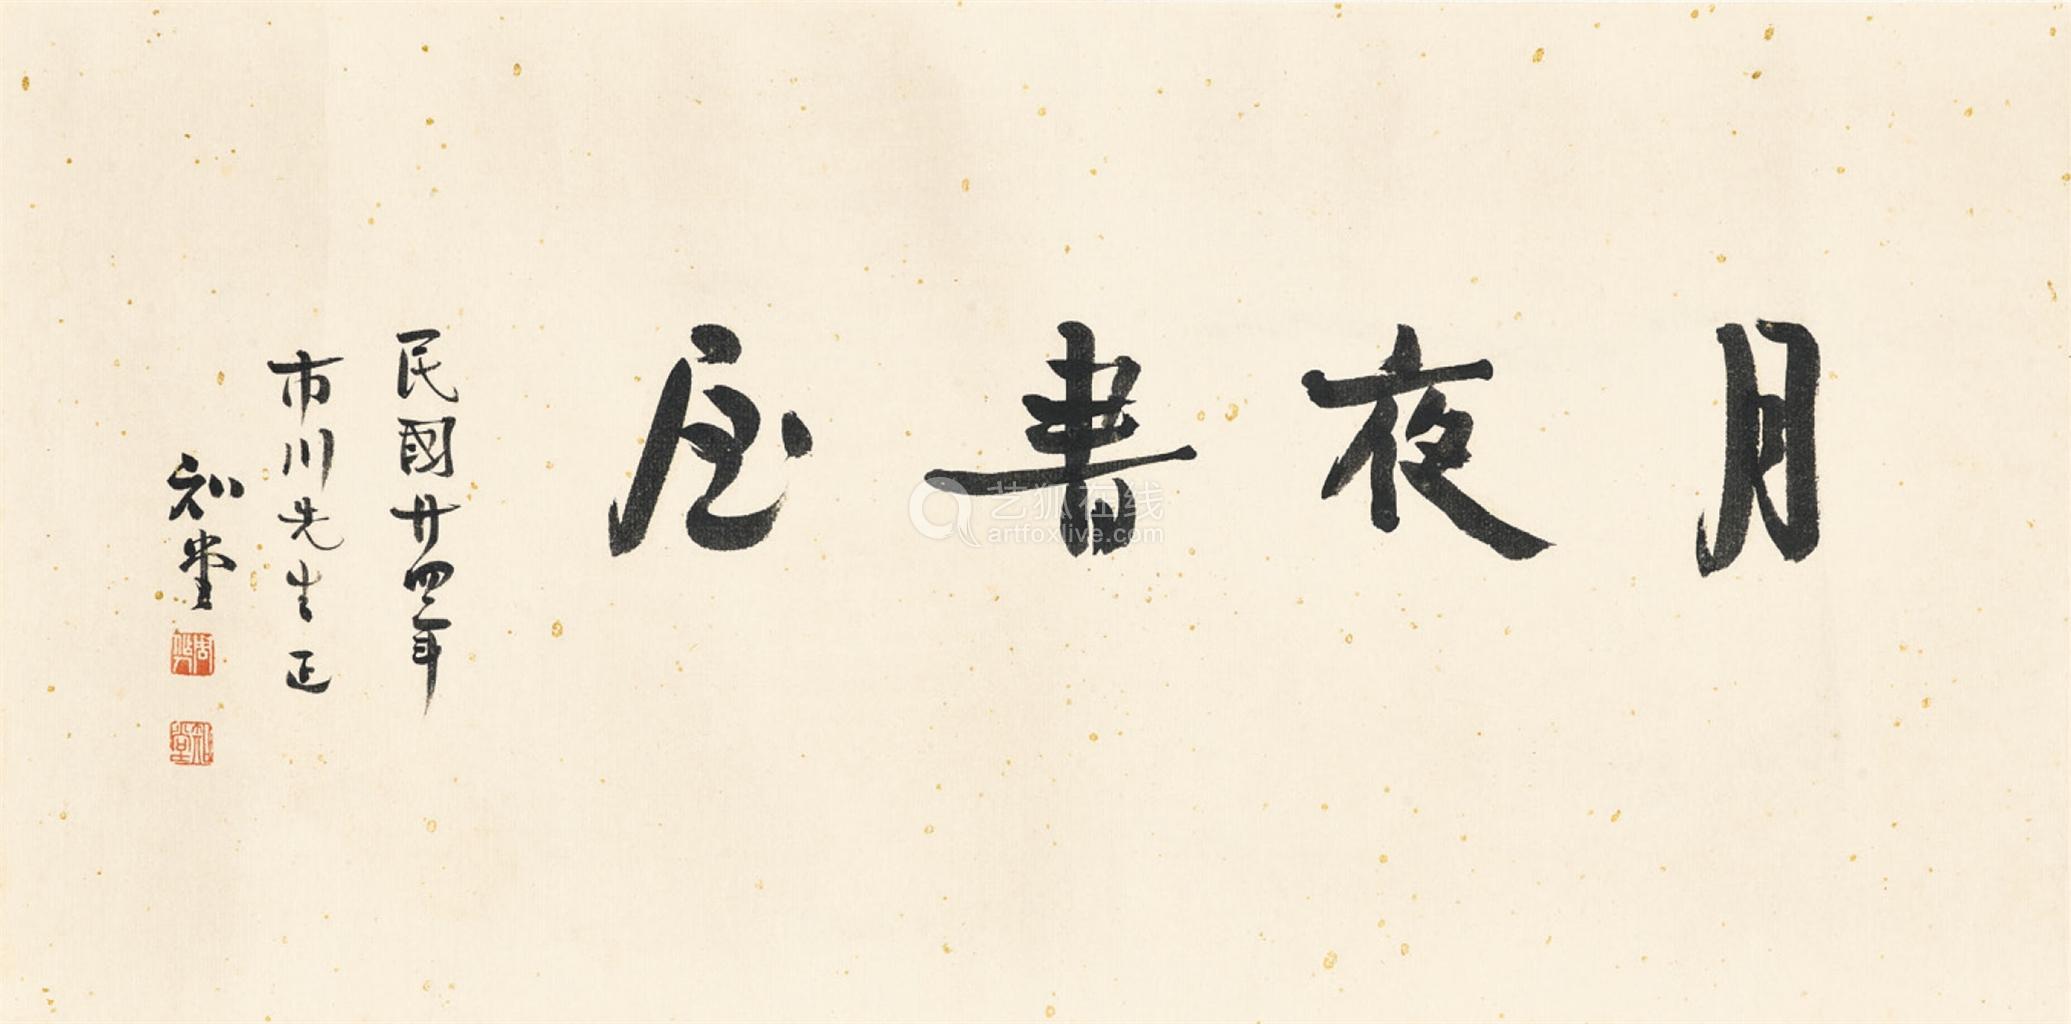 月夜書屋
民國廿四年
市川先生正
知堂
周作人
知堂
艺狐在线
artfoxlive.com